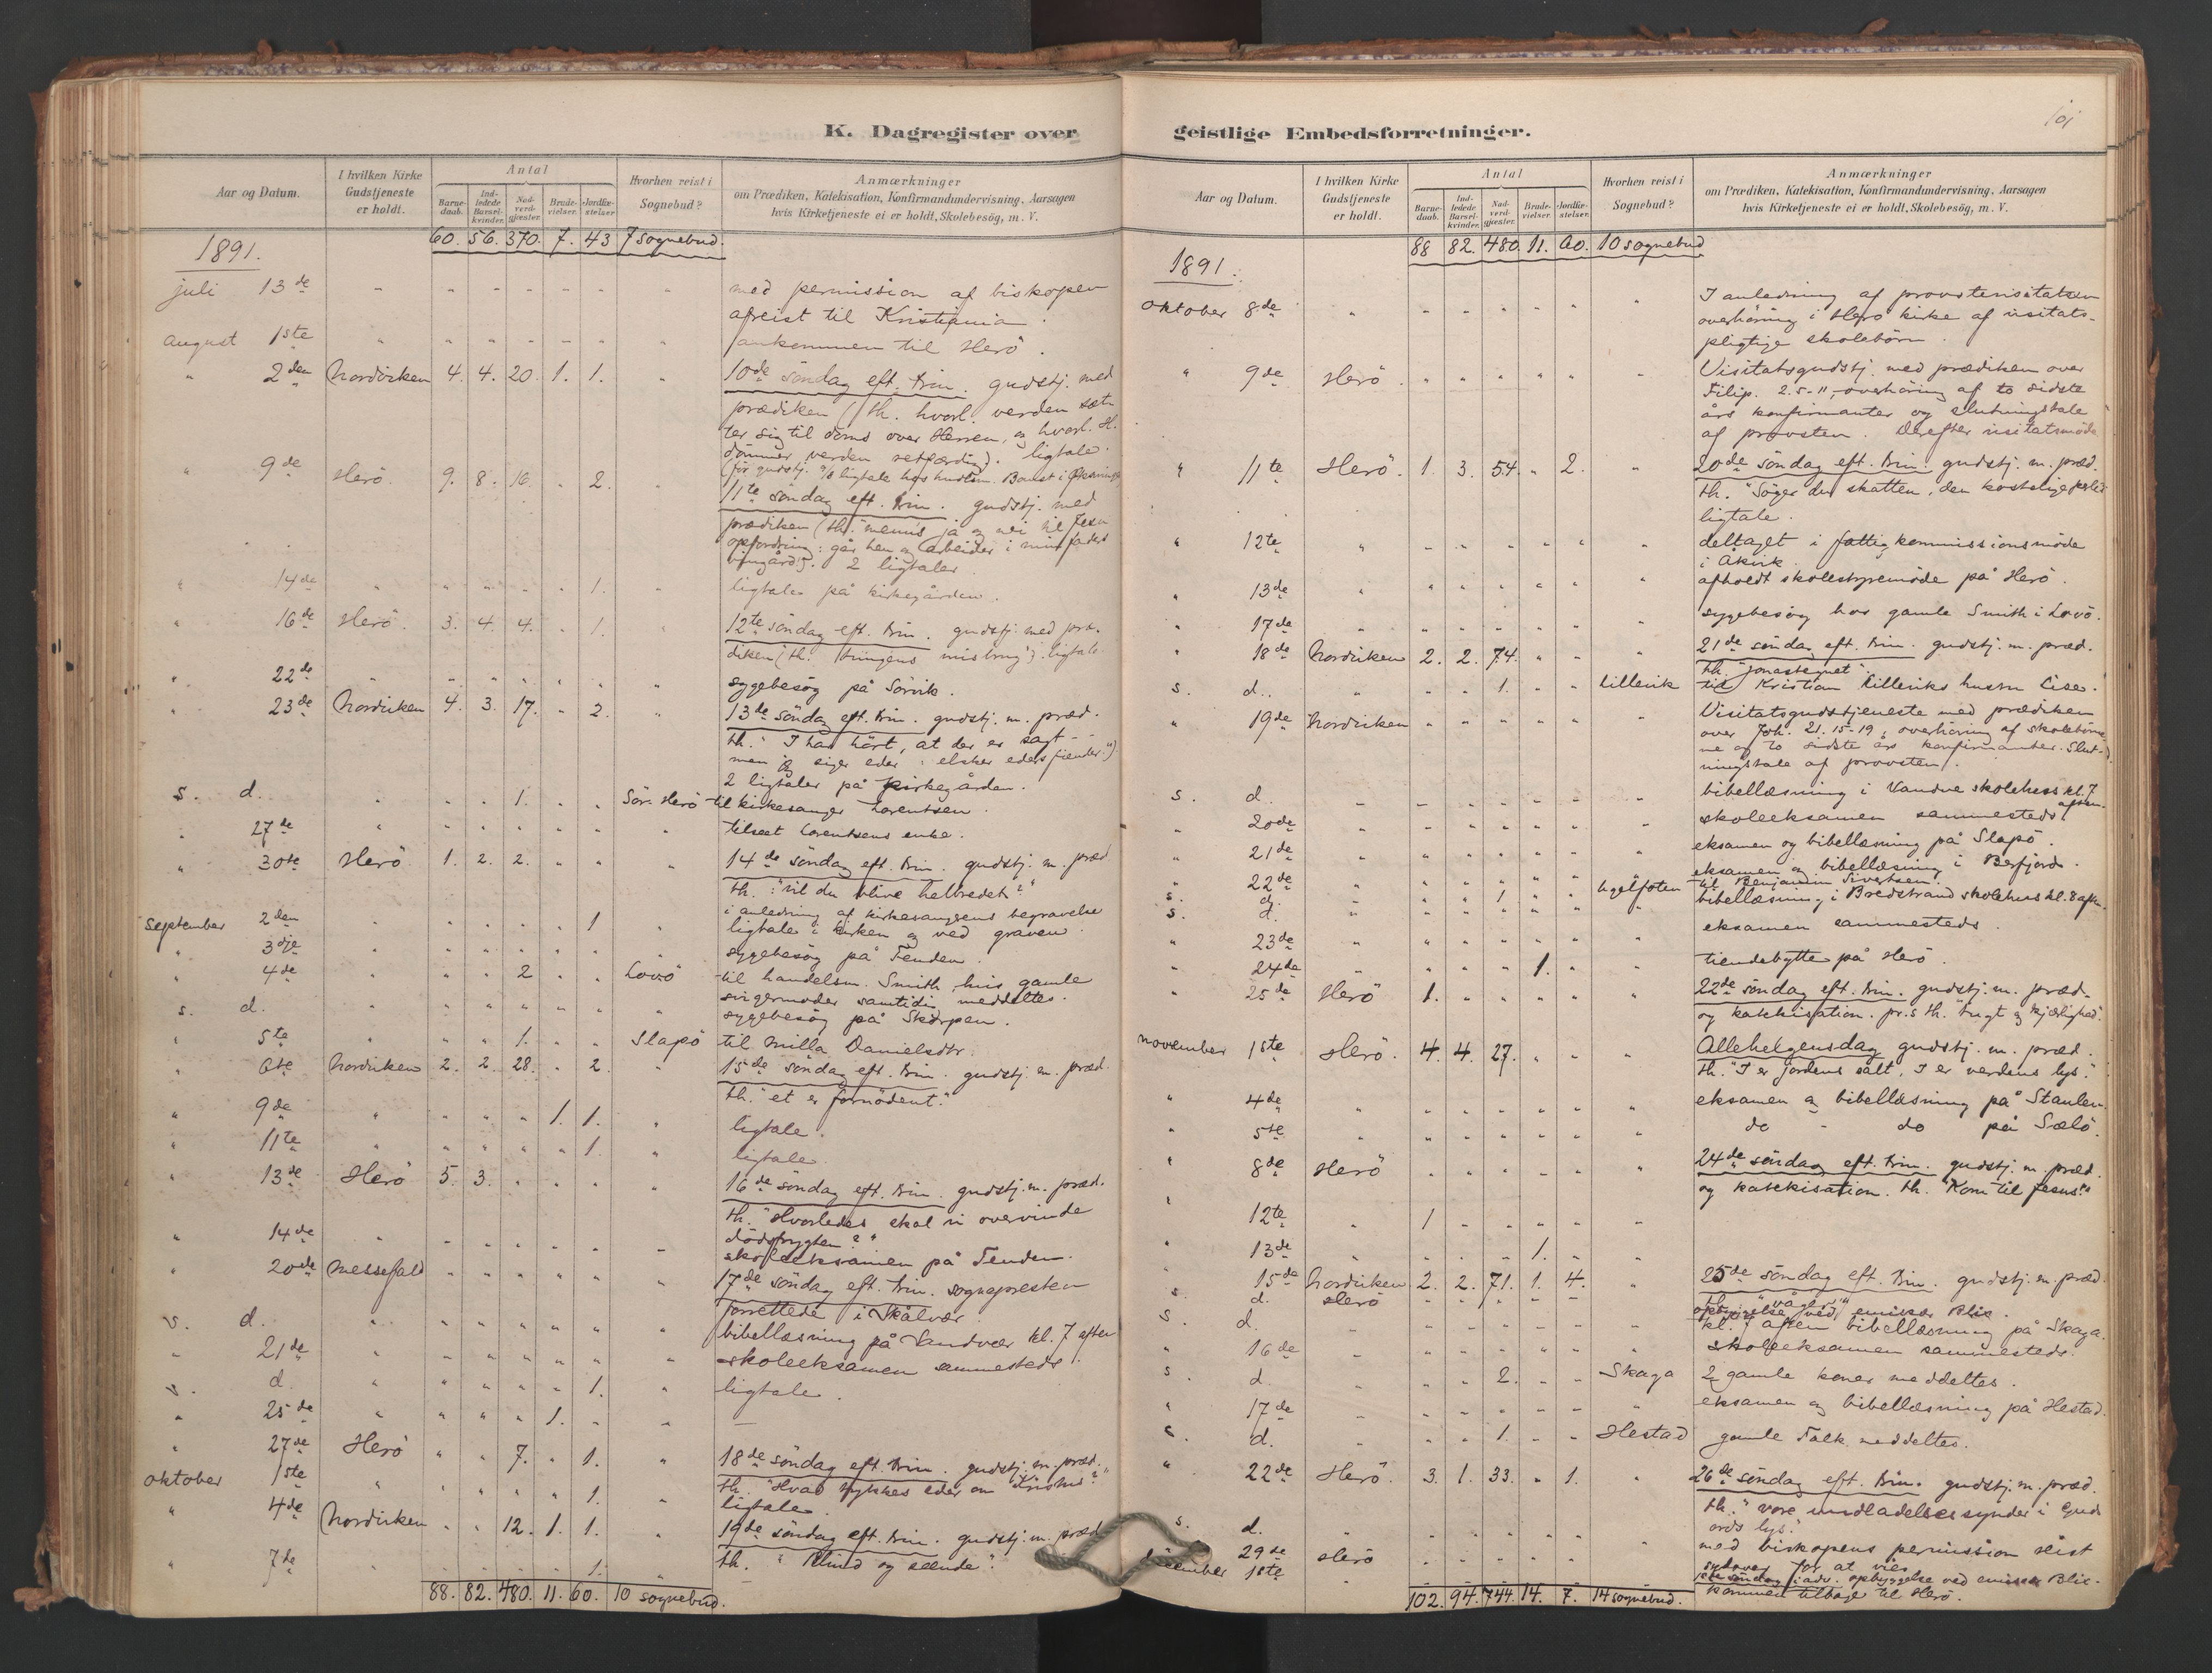 K. Dagregister over
Aar og Datum.
I hvilken Kirke Gudstjeneste er holdt.
Antal
Barnedaab.
Indledede Barselkvinder.
Nadverdgjester.
Brudevielser.
Jordfæstelser.
Hvorhen reist i Sognebud?
Anmærkninger
om Prædiken, Katekisation, Konfirmandundervisning, Aarsagen
hvis Kirketjeneste ei er holdt, Skolebesög, m. V.
60. 56. 370. 7. 43 7 sognebud.
1891.
juli 13de " " " " " " " med permission af biskopen
afreist til Kristiania.
august 1ste " " " " " " " ankommen til Herö.
" 2den Nordviken 4. 4. 20. 1. 1. " 10de söndag eft. trin. gudstj. med
prædiken (th. hvorl. verden sæt-
ter sig til doms over Herren, og hvorl. H.
dömmer verden retfærdig). ligtale.
" 9de Herö. 9. 8. 16. " 2. "
11te söndag eft. trin. gudstj. med
prædiken
opfordring: går hen og arbeider i min faders
vingård). 2 ligtaler.
" 14de " " " " " 1. " ligtale på kirkegården.
" 16de Herö. 3. 4. 4. " 1. " 12te söndag eft. trin. gudstj. med præ-
diken (th. tungens misbrug). ligtale.
" 22de " " " " " " " sygebesög på Sörvik.
" 23de Nordviken 4. 3. 17. " 2. " 13de söndag eft. trin. gudstj. m. præd.
th. "I har hört, at der er sagt - -
men jeg siger eder: elsker eders fiender").
2 ligtaler på kirkegården.
s. d. " " " 1. " " Sör-Herö til kirkesanger Lorentsen.
" 27de " " " " " " " tilseet Lorentsens enke.
" 30te Herö 1. 2. 2. " " " 14de söndag eft. trin. gudstj. m. præd
th.: "vil du blive helbredet?"
september 2den " " " " " 1 " i anledning af kirkesangerens begravelse
ligtale i kirken og ved graven.
" 3dje " " " " " " " sygebesög på Tenden.
" 4de " " " 2 " " Lovö til handelsm. Smith, hvis gamle
svigermoder samtidig meddeltes.
s. d. " " " " " " " sygebesög på Skorpen.
" 5te " " " 1. " " Slapö til Milla Danielsdtr.
" 6te Nordviken 2. 2 28. " 2. " 15de söndag eft. trin. gudstj. m. præd.
th. "et er fornödent."
" 9de " " " " 1. 1. " ligtale.
" 11te " " " " " 1. " ligtale.
" 13de Herö 5. 3. " " " " 16de söndag eft. trin. gudstj. m. præd.
th. "Hvorledes skal vi overvinde
dödsfrygten?"
" 14de " " " " " " " skoleeksamen på Tenden.
" 20de Messefald " " " " " " 17de söndag eft. trin. sognepresten
forrettede i Skålvær.
s. d. " " " " " " " bibellæsning på Sandvær kl. 7 aften
" 21de " " " " " " " skoleeksamen sammesteds.
s. d. " " " " " 1. " ligtale.
" 25de " " " " 1. " "
" 27de Herö " " 7. " 1. " 18de söndag eft. trin. gudstj. m. præd.
th. "Hvad tykkes eder om Kristus?"
oktober 1ste " " " " " 1. " ligtale.
" 4de Nordviken " " 12. 1. 1. " 19de söndag eft. trin. gudstj. m. præd
th. "Blind og seende".
" 7de " " " " " 1. "
88. 82. 480. 11. 60. 10 sognebud.
101
geistlige Embedsforretninger.
Aar og Datum.
I hvilken Kirke Gudstjeneste er holdt.
Antal
Barnedaab.
Indledede Barselkvinder.
Nadverdgjester.
Brudevielser.
Jordfæstelser.
Hvorhen reist i Sognebud?
Anmærkninger
om Prædiken, Katekisation, Konfirmandundervisning, Aarsagen
hvis Kirketjeneste ei er holdt, Skolebesög, m. V.
88 82. 480. 11. 60. 10 sognebud
1891.
oktober 8de " " " " " " " I anledning af provstevisitatsen
overhöring i Herö kirke af visitats-
pligtige skolebörn.
" 9de Herö. " " " " " " Visitatsgudstj. med prædiken over
Filip. 2. 5-11, overhöring af to sidste
års konfirmanter og slutningstale
af provsten. Derefter visitatsmöde
" 11te Herö. 1. 3. 54. " 2. " 20de söndag eft. trin. gudstj. m. præd.
th. "Söger du skatten, den kostelige perle?
ligtale.
" 12te " " " " " " " deltaget i fattigkommissionsmöde
i Åkvik.
" 13de " " " " " " " afholdt skolestyremöde på Herö.
" 17de " " " " " " " sygebesög hos gamle Smith i Lovö.
" 18de Nordviken 2. 2. 74. " " " 21de söndag eft. trin. gudstj. m. præd.
th. "Jonastegnet".
s. d. " " " 1. " " Lillevik til Kristian Lilleviks hustru Lise.
" 19de Nordviken " " " " " " Visitatsgudstjeneste med prædiken
over Joh. 21. 15-19, overhöring af skolebörne-
ne og to sidste års konfirmanter. Slut-
ningstale af provsten.
s. d. " " " " " " " bibellæsning i Vandve skolehus kl. 7
aften.
" 20de " " " " " " " skoleeksamen sammesteds.
" 21de " " " " " " " eksamen og bibellæsning på Slapö.
" 22de " " " " " " " eksamen og bibellæsning i Berfjord.
s. d. " " " 1 " " til Benjamin Sivertsen.
s. d. " " " " " " " bibellæsning i Bredstrand skolehus kl. 8 aften.
" 23de " " " " " " " eksamen sammesteds.
" 24de " " " " 1. " " tiendebytte på Herö.
" 25de Herö 1. " " " " " 22de söndag eft. trin. gudstj. m. præd.
og katekisation. pr.s th. "frygt og kjærlighed".
november 1ste Herö. 4. 4. 27. " " " Allehelgensdag gudstj. m. præd.
th. "I er jordens salt, I er verdens lys."
" 4de " " " " " " " eksamen og bibellæsning på Staulen.
" 5te " " " " " " " do - do på Sælö.
" 8de Herö " " " " " " 24de söndag eft. trin. gudstj. m. præd.
og katekisation. th. "Kom til Jesus!"
" 12te " 1 " " " " "
" 13de " " " " 1. " "
" 15de Nordviken 2. 2. 71. 1. 4. " 25de söndag eft. trin. gudstj. m. præd
s. d. Herö " " " " " opbyggelse ved emissær Blix.
s. d. " " " " " " " kl. 7 aften bibellæsning på Skaga.
" 16de " " " " " " " skoleeksamen sammesteds.
s. d. " " " 2. " " Skaga 2 gamle koner meddeltes.
" 17de " " " " " " " eksamen og bibellæsning på Hestad.
s. d. " " " 1. " " Hestad gamle Falk meddeltes.
" 22de Herö. 3. 1. 33. " 1. " 26de söndag eft. trin. gudstj. m. præd.
th. "vore undladelsessynder i Guds
ords lys."
s. d. " " " " " " " med biskopens permission reist
sydover for at vies.
" 29de Herö " " " " " 1ste söndag i adv. opbyggelse ved emissær Blix.
december 1ste " " " " " " " kommen tilbage til Herö.
102. 94. 744. 14. 7. 14 sognebud.